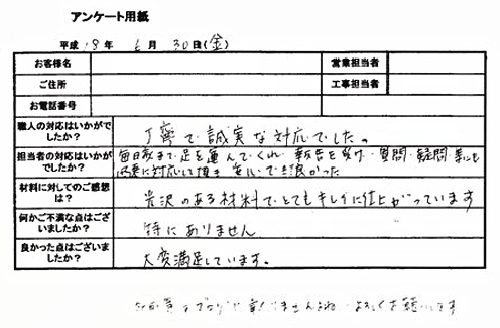 アンケート用紙
平成 18 年 6 月 30 日(金)
お客様名 営業担当者
ご住所 工事担当者
お電話番号
職人の対応はいかがでしたか? 丁寧で誠実な対応でした。
担当者の対応はいかがでしたか? 毎日家まで足を運んでくれ、報告を受け、質問、疑問
に対応して頂き 安心で 良かった
材料に対してのご感想は? 光沢のある材料でとてもキレイに仕上がっています
何かご不満な点はございましたか? 特にありません
良かった点はございましたか? 大変満足しています。
よろしくお願いします